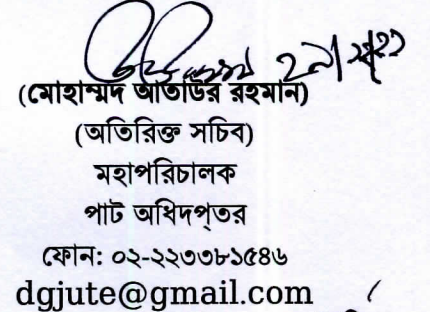 (মোহাম্মদ আতাউর রহমান)
(অতিরিক্ত সচিব)
মহাপরিচালক
পাট অধিদপ্তর
ফোন: ০২-২২৩৩৮১৫৪৬
dgjute@gmail.com